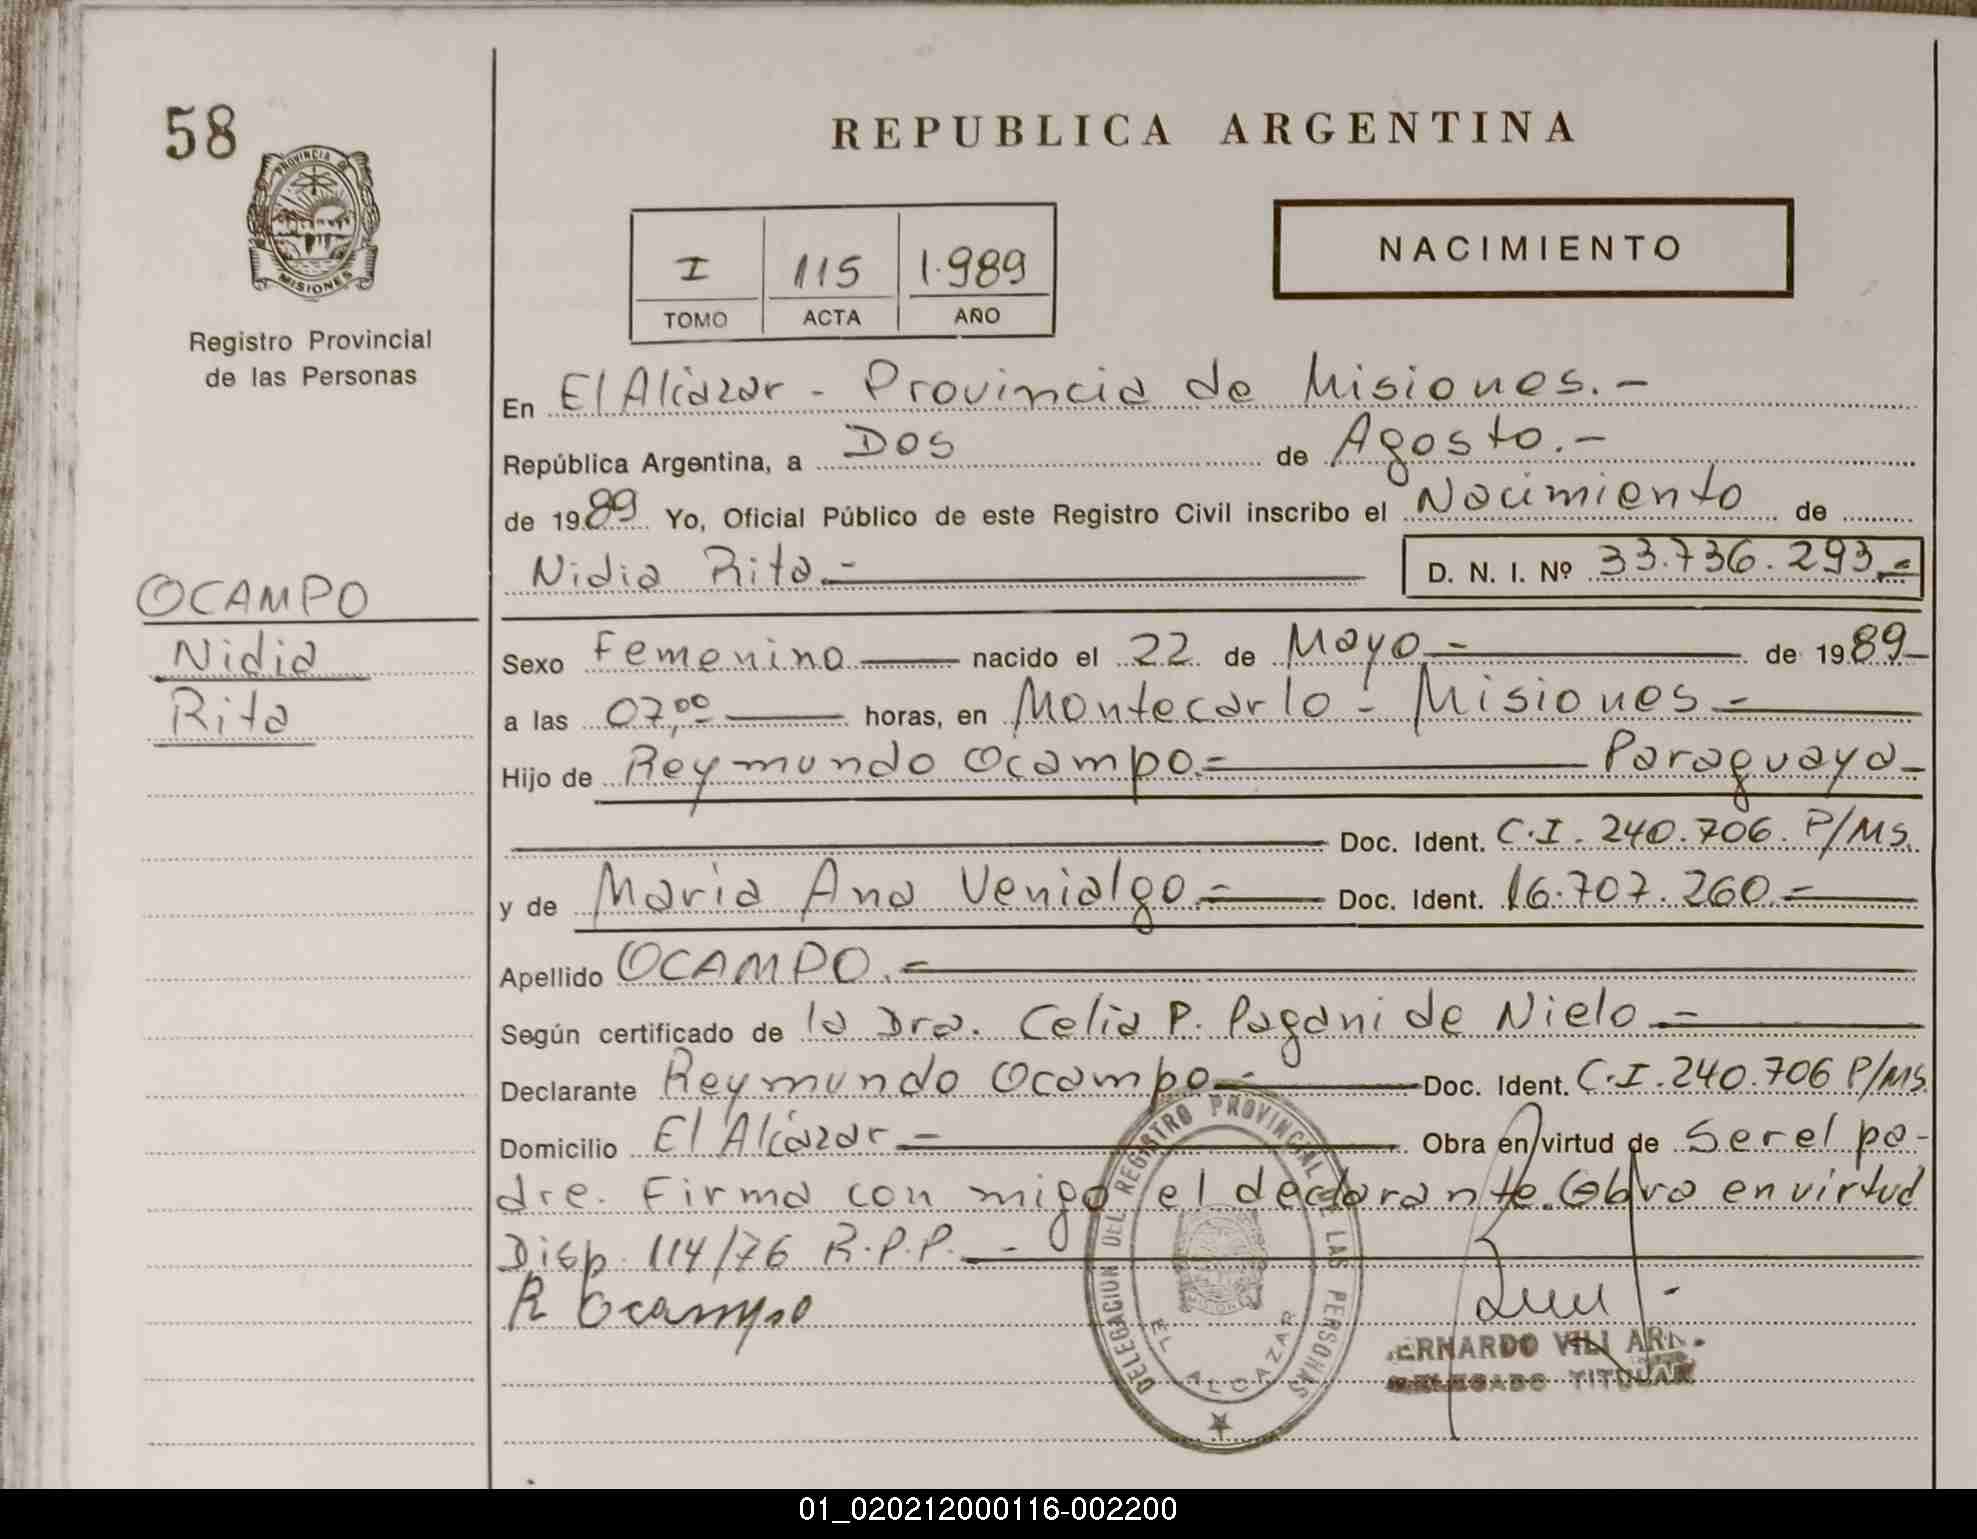 58
PROVINCIA DE
MISIONES
Registro Provincial
de las Personas
REPUBLICA ARGENTINA
I 115 1.989
TOMO ACTA AÑO
NACIMIENTO
En El Alcazar - Provincia de Misiones.-
República Argentina, a Dos de Agosto.-
de 1989 Yo, Oficial Público de este Registro Civil inscribo el Nacimiento de
Nidia Rita.- D. N. I. Nº 33.736.293.-
OCAMPO
Nidia
Rita
Sexo Femenino nacido el 22 de Mayo - de 1989
a las 07,00 horas, en Montecarlo - Misiones -
Hijo de Reymundo Ocampo.- Paraguaya -
Doc. Ident. C.I. 240.706. P/Ms.
y de Maria Ana Venialgo.- Doc. Ident. 16.707.260.-
Apellido OCAMPO.-
Según certificado de la Dra. Celia P. Pagani de Nielo -
Declarante Reymundo Ocampo - Doc. Ident. C.I. 240.706 P/Ms.
Domicilio El Alcazar - Obra en virtud de Ser el pa-
dre. Firma con migo el declarante. Obra en virtud
Disp. 114/76 R.P.P. -
R Ocampo
DELEGACION DEL REGISTRO PROVINCIAL DE LAS PERSONAS
EL ALCAZAR
DELEGADO TITULAR
01_020212000116-002200